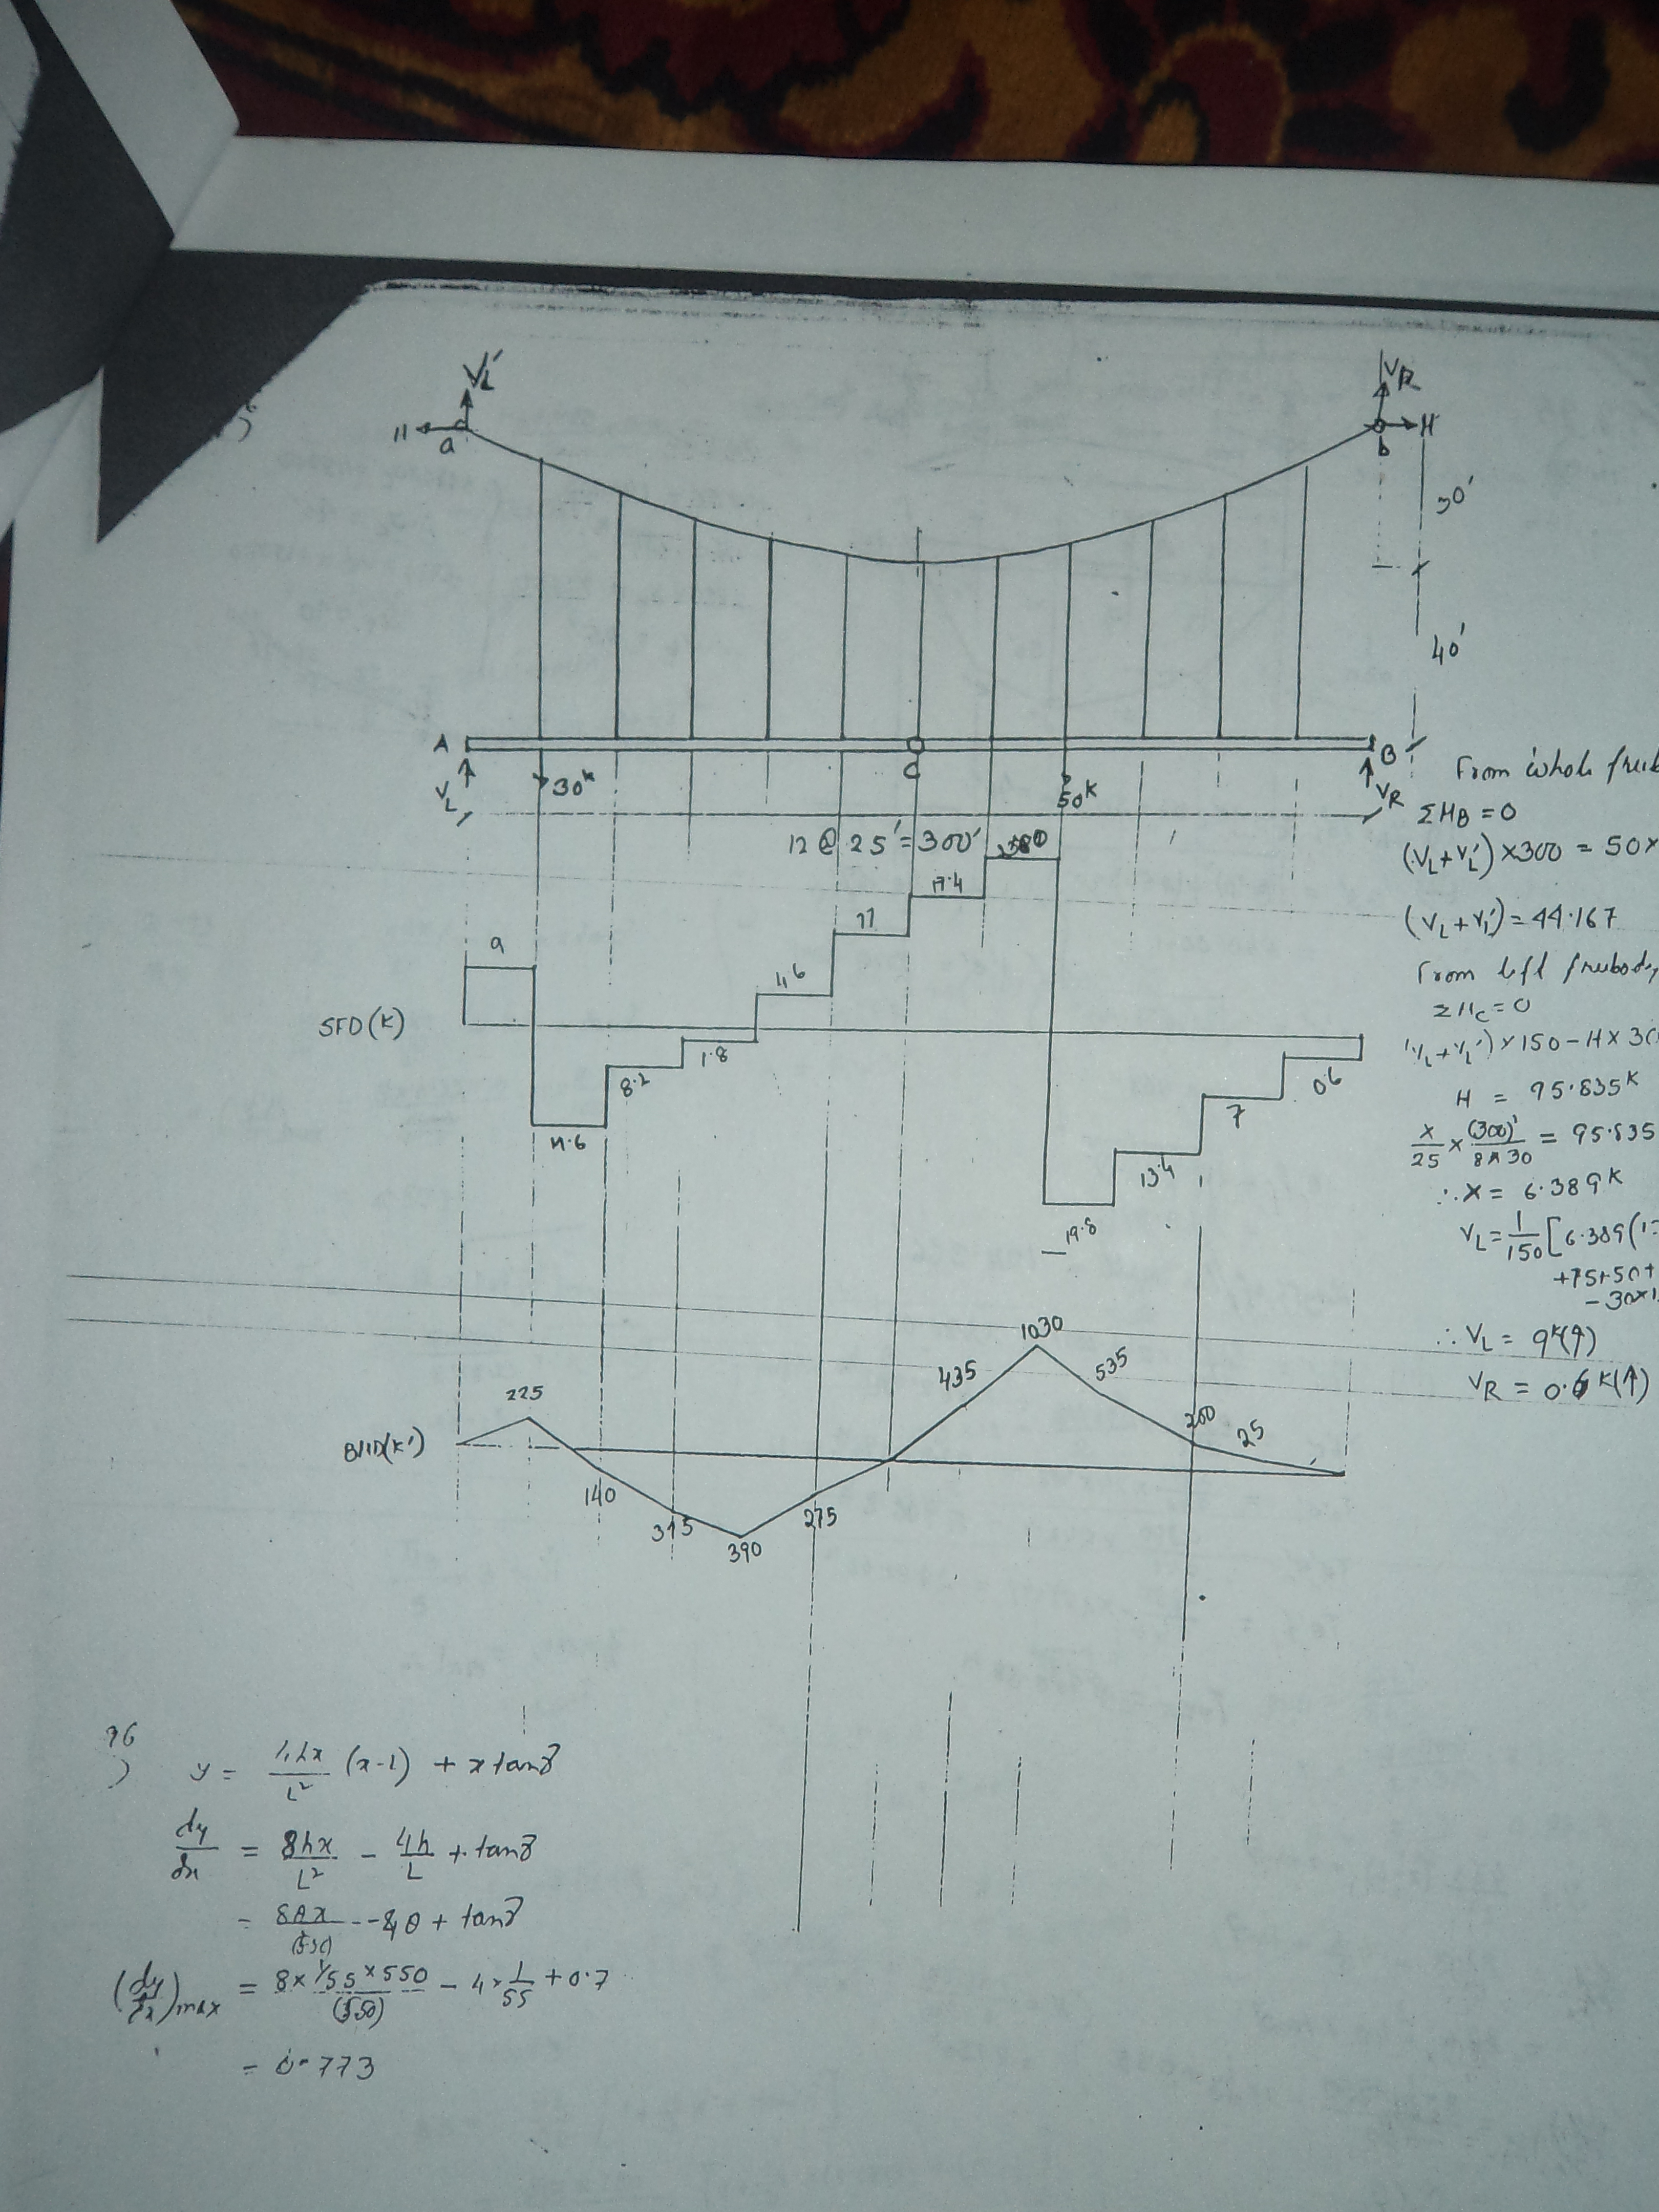 V_L'
V_R
H
a
b
H
30'
40'
A
C
B
V_L
30^k
50^k
V_R
12 @ 25' = 300'
From whole
ΣM_B = 0
(V_L + V_L') × 300 = 50 ×
(V_L + V_L') = 44.167
From left freebody
ΣM_C = 0
(V_L + V_L') × 150 - H × 30
H = 95.835^k
x/25 × (300)²/(8 × 30) = 95.835
∴ x = 6.389^k
V_L = 1/150 [6.389 (
+75+50+
- 30×1
∴ V_L = 9^k(↑)
V_R = 0.6^k(↑)
SFD (K)
9
8.2
1.8
4.6
11
17.4
19.8
13.4
7
0.6
BMD(K')
225
140
315
390
275
435
1030
535
200
25
96)
y = 4hx/L² (x-L) + x tanγ
dy/dx = 8hx/L² - 4h/L + tanγ
= 8θx/(550) - 4θ + tanγ
(dy/dx)max = 8 × 1/55 × 550/(550) - 4 × 1/55 + 0.7
= 0.773